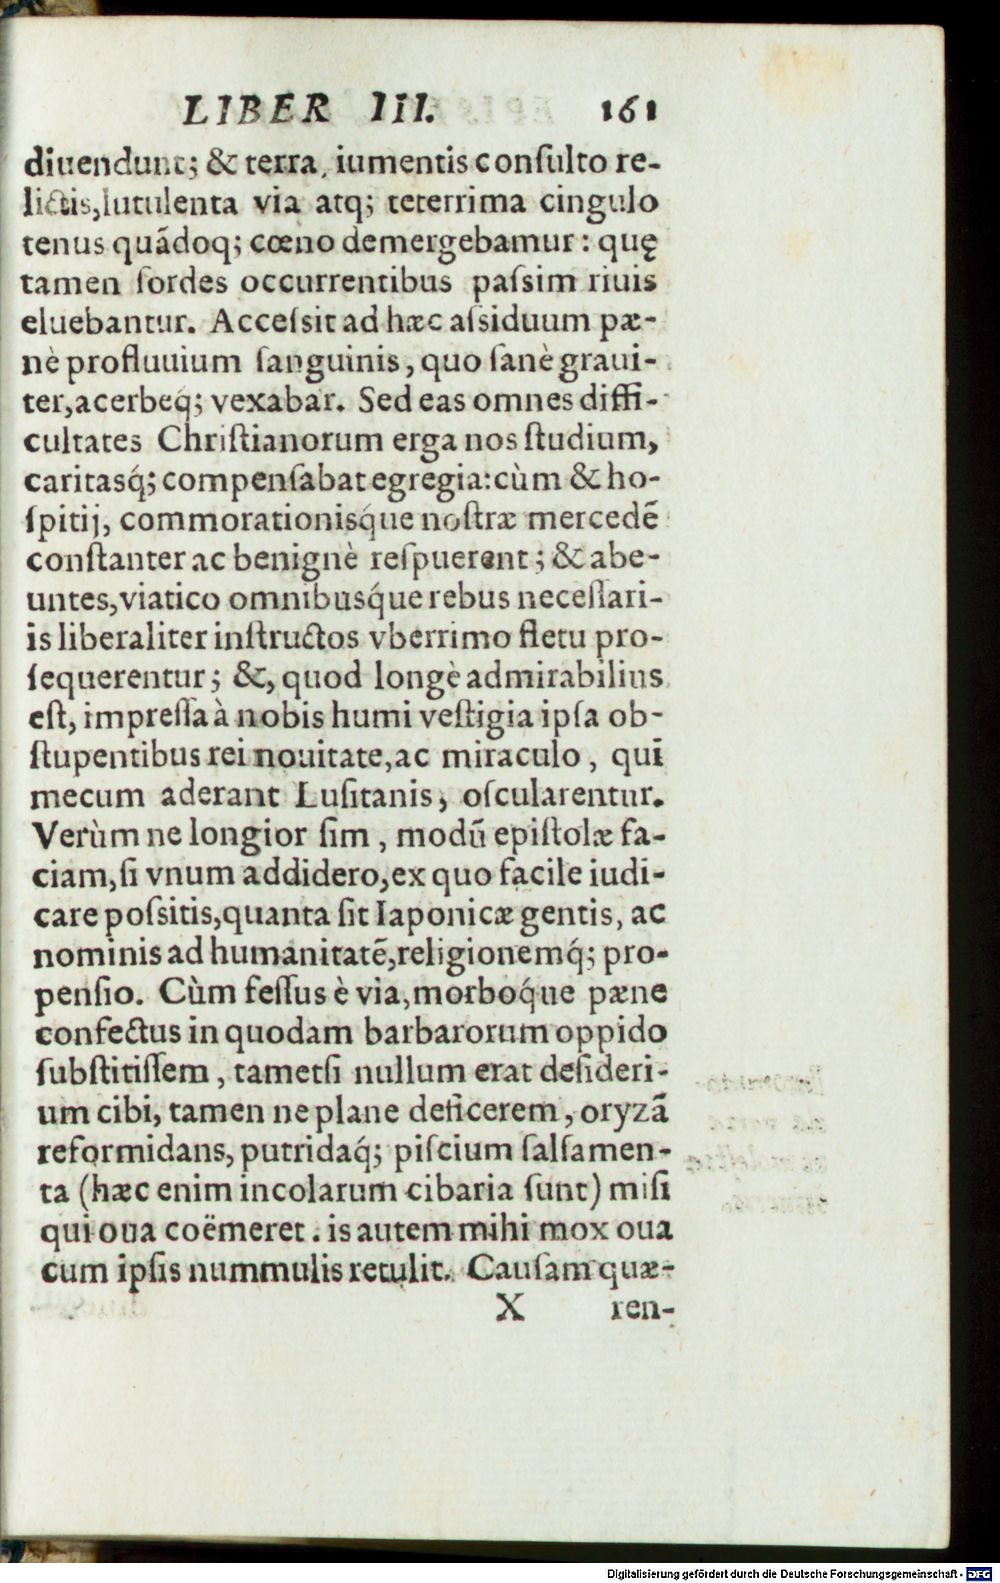 LIBER III. 161
diuendunt; & terra, iumentis consulto re-
lictis, lutulenta via atq; teterrima cingulo
tenus quãdoq; cœno demergebamur: quę
tamen sordes occurrentibus passim riuis
eluebantur. Accessit ad hæc assiduum pæ-
nè profluuium sanguinis, quo sanè graui-
ter, acerbeq́; vexabar. Sed eas omnes diffi-
cultates Christianorum erga nos studium,
caritasq́; compensabat egregia: cùm & ho-
spitij, commorationisq́ue nostræ mercedẽ
constanter ac benignè respuerent; & abe-
untes, viatico omnibusq́ue rebus necessari-
is liberaliter instructos vberrimo fletu pro-
sequerentur; &, quod longè admirabilius
est, impressa à nobis humi vestigia ipsa ob-
stupentibus rei nouitate, ac miraculo, qui
mecum aderant Lusitanis, oscularentur.
Verùm ne longior sim, modũ epistolæ fa-
ciam, si vnum addidero, ex quo facile iudi-
care possitis, quanta sit Iaponicæ gentis, ac
nominis ad humanitatẽ, religionemq́; pro-
pensio. Cùm fessus è via, morboq́ue pæne
confectus in quodam barbarorum oppido
substitissem, tametsi nullum erat desideri-
um cibi, tamen ne plane deficerem, oryzã
reformidans, putridaq́; piscium salsamen-
ta (hæc enim incolarum cibaria sunt) misi
qui oua coëmeret. is autem mihi mox oua
cum ipsis nummulis retulit. Causam quæ-
X ren-
Digitalisierung gefördert durch die Deutsche Forschungsgemeinschaft - DFG